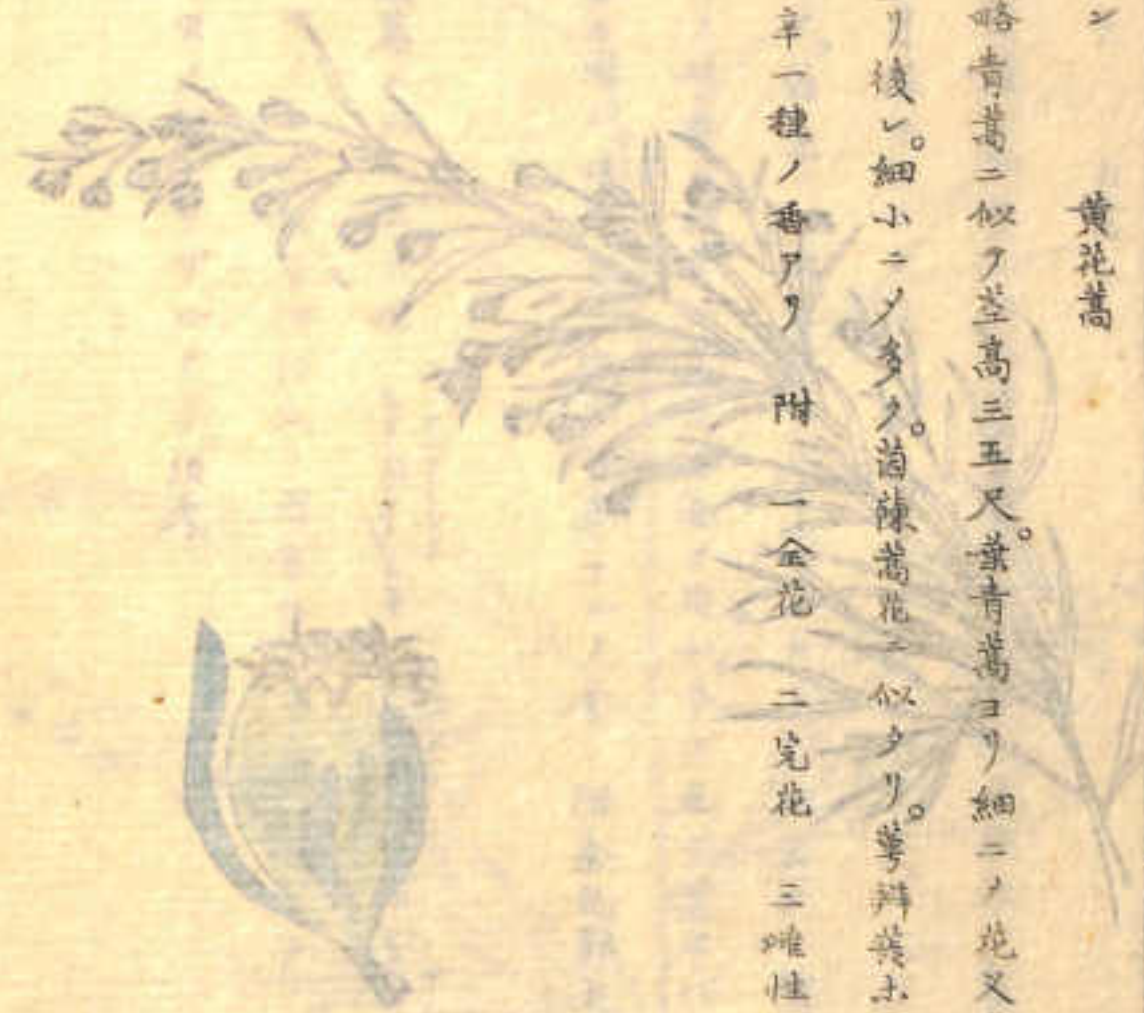 ン 黄花蒿
略青蒿ニ似テ莖高三五尺。葉青蒿ヨリ細ニノ花又
リ後レ。細小ニノ多ク。茵蔯蒿花ニ似タリ。萼
辛一種ノ香アリ 附 一全花 二完花 三雌性